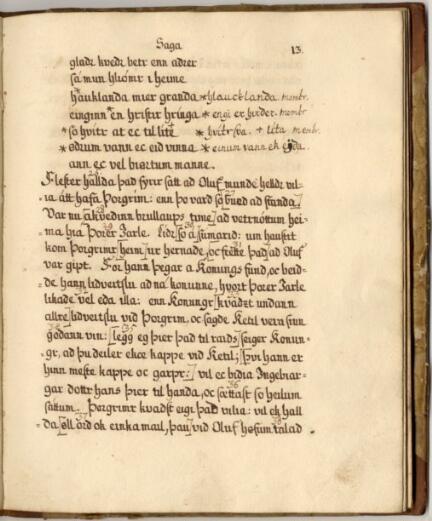 Saga 13.
gladr kvedr betr enn adrer
sa mun hliomr i heime
hauklanda mier granda * hlaucklanda. membr.
einginn * en hristir hringa * engi er hirder. membr
* so hvitr at ec til lite * hvitrsva. + lita membr.
* ödrum vann ec eid vinna * einum vann ek
ann ec vel biartum manne.
Flester hallda þad fyrir satt ad Oluf munde helldr vil-
ia átt hafa Þorgrim: enn þo vard so bued ad standa.
Var nu akvedinn brullaups time ad vetrnóttum hei-
ma, hia Þorer Jarle. Lidr so a sumarid: um haustit
kom Þorgrimr heim ur hernade, oc frette þad ad Oluf
var gipt. For hann þegar a Konungs fund, oc beid-
de hann lidveitslu ad na konunne, hvort Þorer Jarle
likade vel eda illa: enn Konungr kvadzt undann
allre lidveitslu vid Þorgrim, oc sagde Ketil vera sinn
godann vin: legg eg þier þad til raids, seiger Konun-
gr, ad þu deiler ekce kappe vid Ketil; þvi hann er
hinn meste kappe oc garpr: vil ec bidia Ingebiar-
gar dottr hans þier til handa, oc sættast so heilum
sattum. Þorgrimr kvadst eigi þad vilia: vil ek hall
da öll ord ok einkamail, þau vid Oluf hofum talad